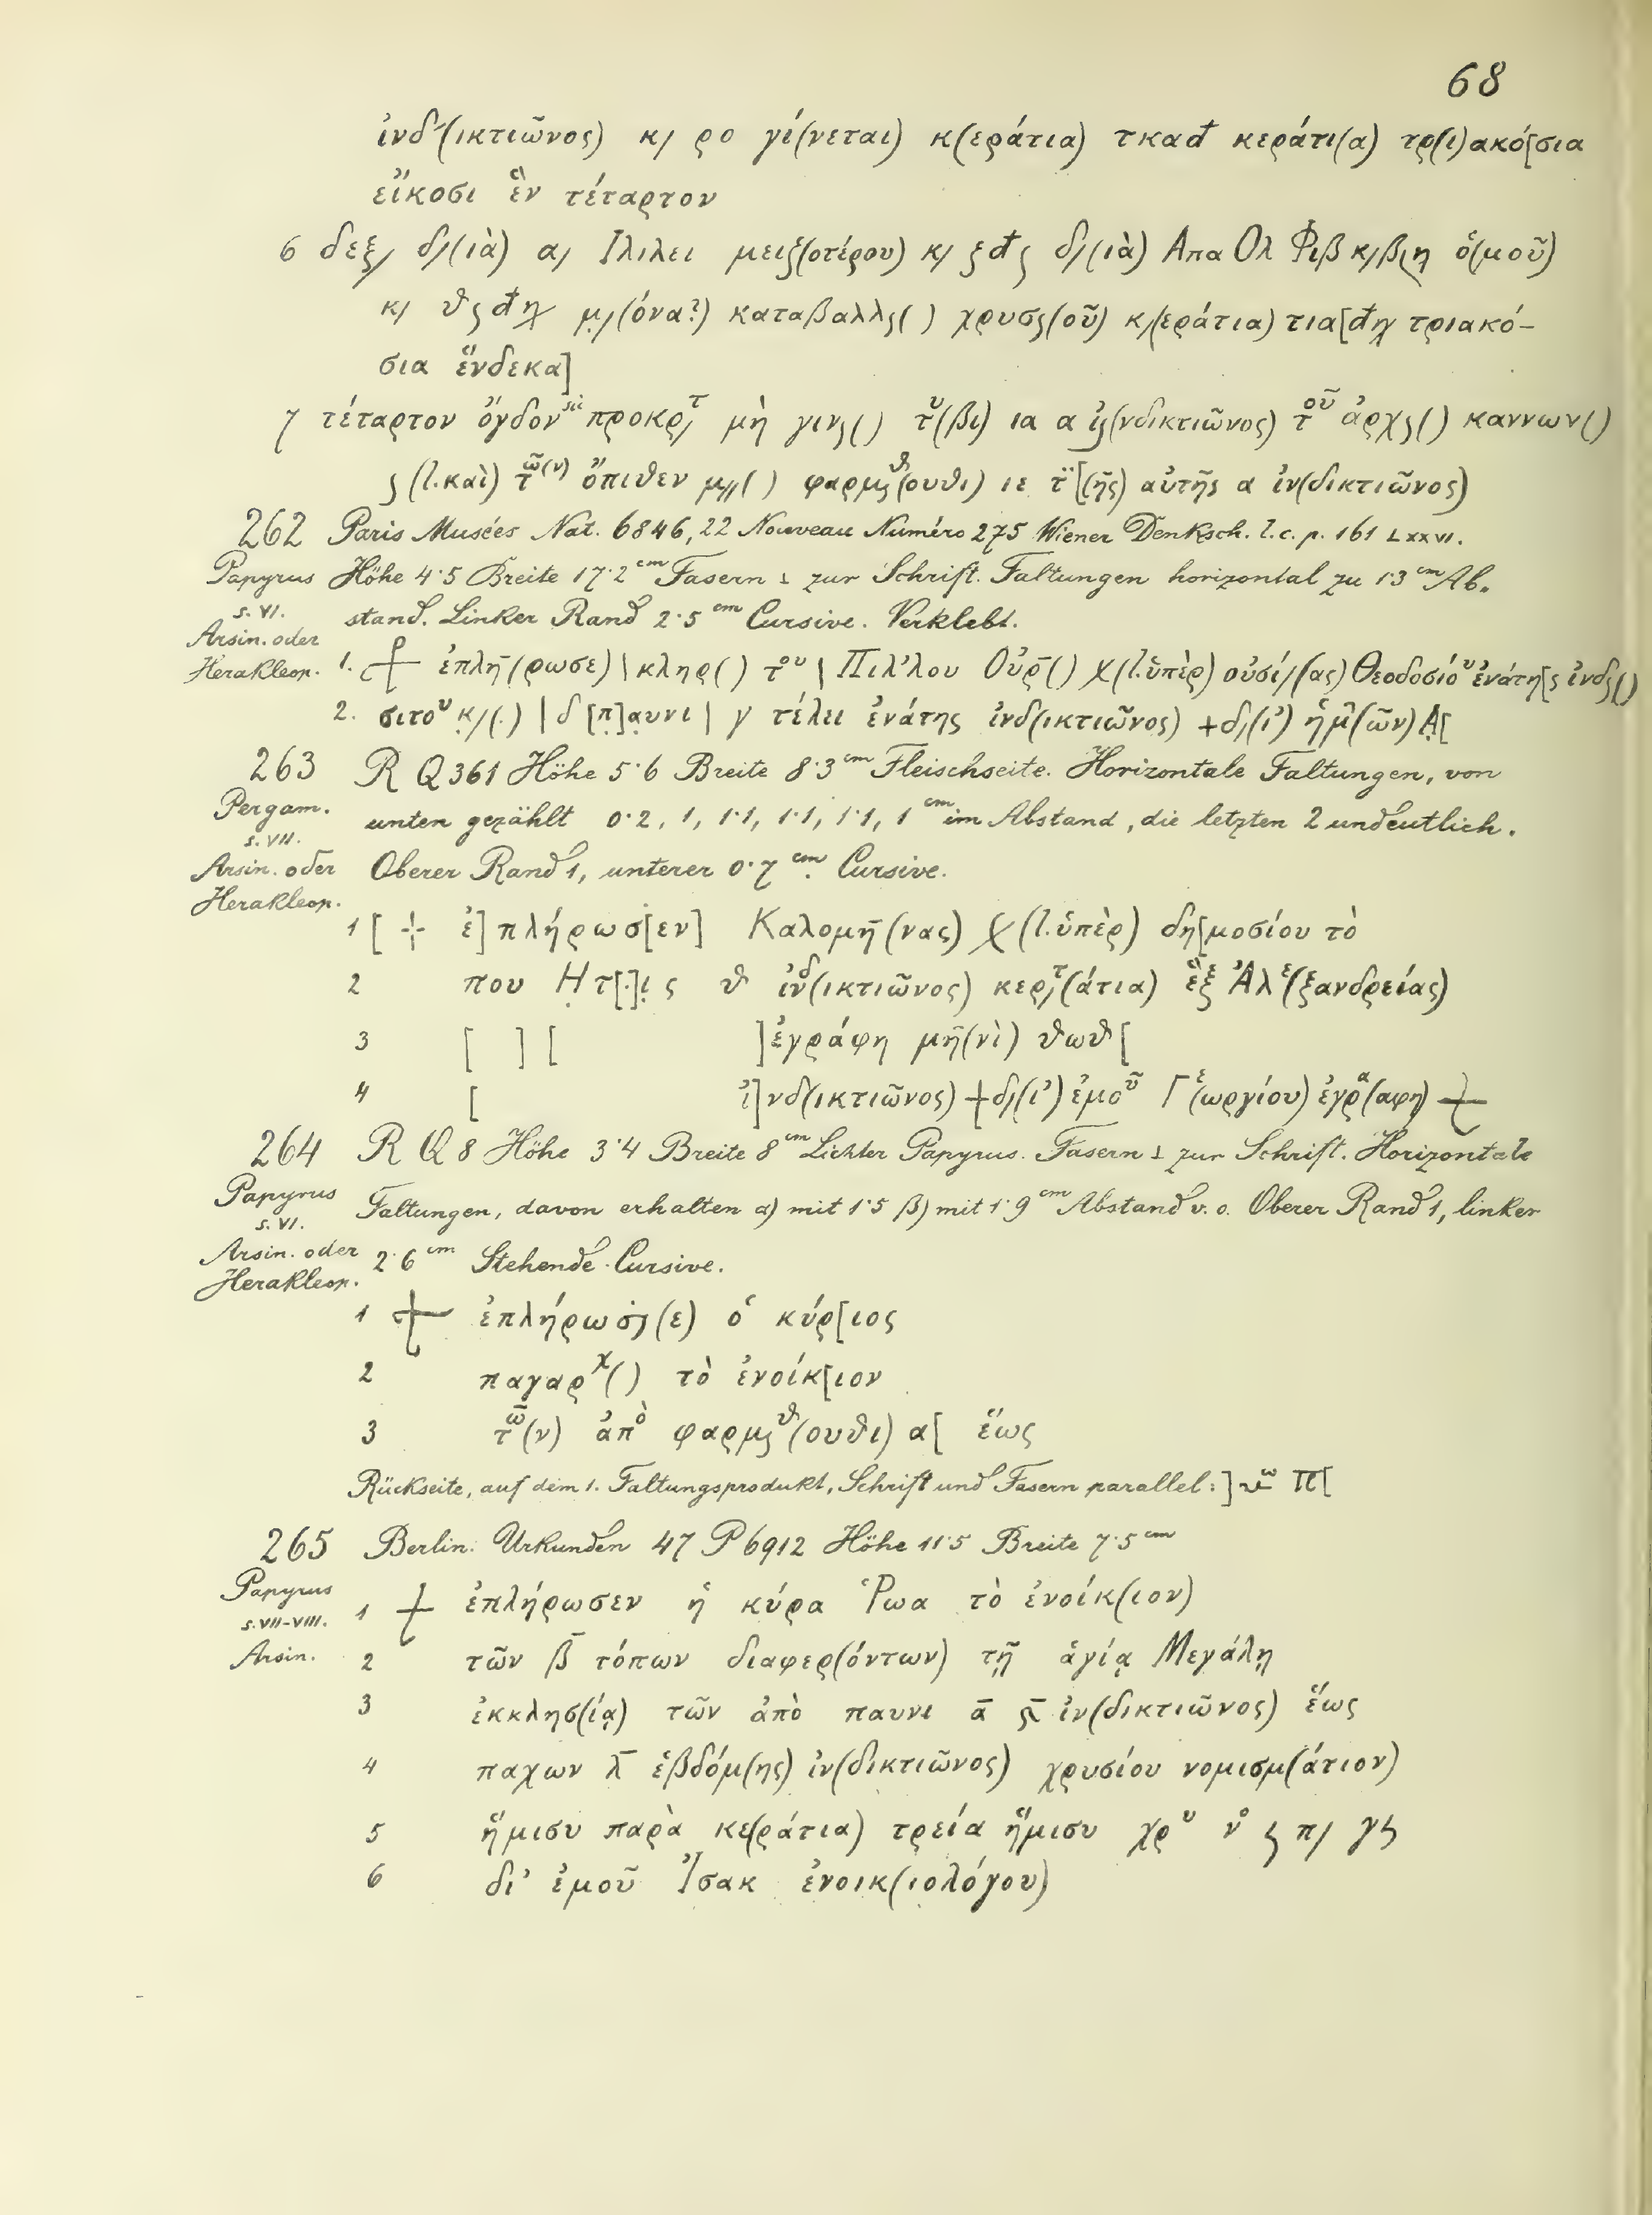 68
ἰνδ(ικτιῶνος) κ/ ρο γί(νεται) κ(εράτια) τκαđ κεράτι(α) τρ(ι)ακό[σια
εἴκοσι ἓν τέταρτον
6 δεξ/ δ/(ιὰ) α/ Ιλιλει μειζ(οτέρου) κ/ ςđς δ/(ιὰ) Απα Ολ Φιβ κ/ βςη ὁ(μοῦ)
κ/ θςđη μ/(όνα?) καταβαλλς( ) χρυσς(οῦ) κ/(εράτια) τια[đη τριακό-
σια ἕνδεκα]
7 τέταρτον ὄγδον sic προκρ/τ μὴ γινς( ) τυ(βι) ια α ἰς(νδικτιῶνος) τοῦ ἀρχς( ) καννων( )
ς (l. καὶ) τῶ(ν) ὄπιθεν μ//( ) φαρμςθ(ουθι) ιε τ[(ῆς) αὐτῆς α ἰν(δικτιῶνος)
262 Paris Musées Nat. 6846, 22 Nouveau Numéro 275 Wiener Denksch. l. c. p. 161 LXXVI.
Papyrus Höhe 4·5 Breite 17·2 cm Fasern ⊥ zur Schrift. Faltungen horizontal zu 1·3 cm Ab-
s. VI. stand. Linker Rand 2·5 cm Cursive. Verklebt.
Arsin. oder
Herakleop. 1. ⳨ ἐπλή(ρωσε) | κληρ( ) του | Πιλ'λου Οὐρ( ) χ (l. ὑπὲρ) οὐσί/(ας) Θεοδοσίου ἐνάτη[ς ἰνδς( )
2. σιτου κ/(.) | δ [π]αυνι | γ τέλει ἐνάτης ἰνδ(ικτιῶνος) + δ/(ι') ἡμ(ῶν) Α[
263 R Q 361 Höhe 5·6 Breite 8·3 cm Fleischseite. Horizontale Faltungen, von
Pergam.
s. VII. unten gezählt 0·2, 1, 1·1, 1·1, 1·1, 1 cm im Abstand, die letzten 2 undeutlich.
Arsin. oder Oberer Rand 1, unterer 0·7 cm. Cursive.
Herakleop.
1 [ + ἐ]πλήρωσ[εν] Καλομη(νας) χ (l. ὑπὲρ) δη[μοσίου τὸ
2 που Ητ[.]ις θ ἰνδ(ικτιῶνος) κερ/τ(άτια) ἓξ Ἀλε(ξανδρείας)
3 [ ] [ ]ἐγράφη μη(νὶ) θωθ[
4 [ ἰ]νδ(ικτιῶνος) + δ/(ι') ἐμοῦ Γε(ωργίου) ἐγρα(αφη) +
264 R Q 8 Höhe 3·4 Breite 8 cm Lichter Papyrus. Fasern ⊥ zur Schrift. Horizontale
Papyrus
s. VI. Faltungen, davon erhalten α) mit 1·5 β) mit 1·9 cm Abstand v. o. Oberer Rand 1, linker
Arsin. oder 2·6 cm Stehende Cursive.
Herakleop.
1 + ἐπλήρωσς(ε) ὁ κύρ[ιος
2 παγαρχ( ) τὸ ἐνοίκ[ιον
3 τῶ(ν) ἀπὸ φαρμςθ(ουθι) α[ ἕως
Rückseite, auf dem 1. Faltungsprodukt, Schrift und Fasern parallel: ] π[
265 Berlin. Urkunden 47 P 6912 Höhe 11·5 Breite 7·5 cm
Papyrus
s. VII-VIII. 1 + ἐπλήρωσεν ἡ κύρα Ῥωα τὸ ἐνοίκ(ιον)
Arsin. 2 τῶν β̄ τόπων διαφερ(όντων) τῇ ἁγίᾳ Μεγάλῃ
3 ἐκκλησ(ίᾳ) τῶν ἀπὸ παυνι ᾱ ς̄ ἰν(δικτιῶνος) ἕως
4 παχων λ̄ ἑβδόμ(ης) ἰν(δικτιῶνος) χρυσίου νομισμ(άτιον)
5 ἥμισυ παρὰ κε(ράτια) τρεία ἥμισυ χρυ νο ς π/ γς
6 δι' ἐμοῦ Ἰσακ ἐνοικ(ιολόγου)